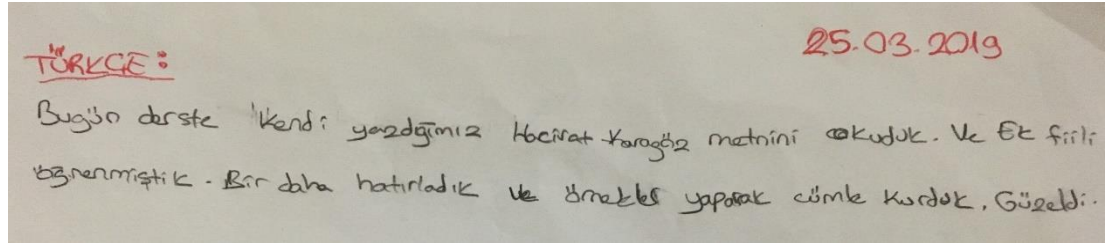 25.03.2019
TÜRKÇE:
Bugün derste kendi yazdığımız Hacivat Karagöz metnini okuduk. Ve Ek fiili
öğrenmiştik. Bir daha hatırladık ve örnekler yaparak cümle kurduk. Güzeldi.